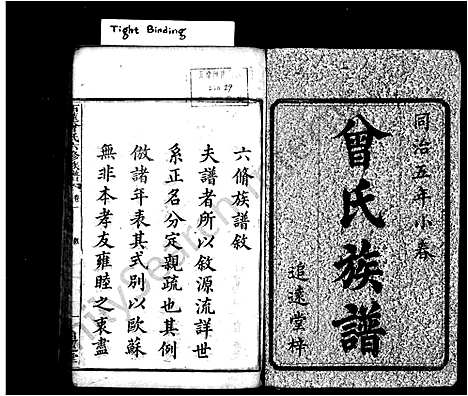 Tight Binding
同治五年小春
曾氏族譜
追遠堂梓
六脩族譜敘
夫譜者所以敘源流詳世
系正名分定親疏也其例
倣諸年表其式別以歐蘇
無非本孝友雍睦之衷盡